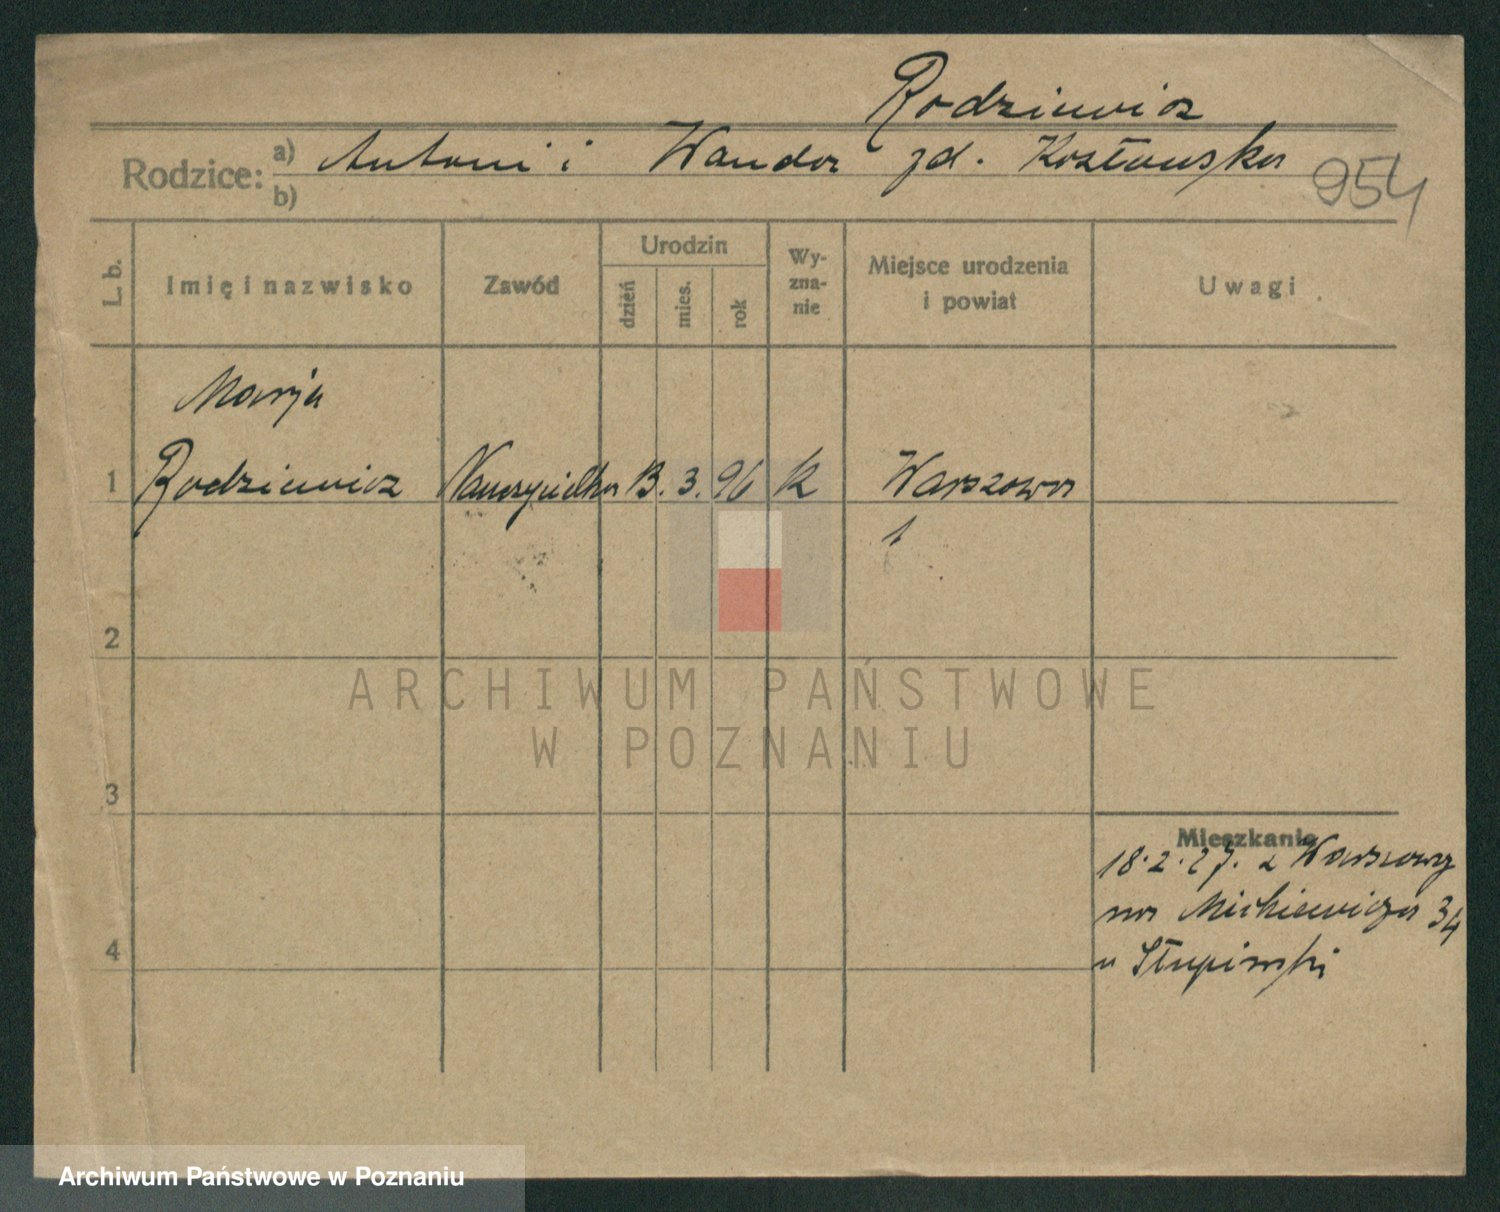 Rodziewicz
Rodzice: a) Antoni i Wanda zd. Kozłowska
b)
954
L. b.
Imię i nazwisko
Zawód
Urodzin
dzień
mies.
rok
Wy-
zna-
nie
Miejsce urodzenia
i powiat
Uwagi
Marja
1 Rodziewicz Nauczycielka 13. 3. 96 k Warszawa
2
ARCHIWUM PAŃSTWOWE
W POZNANIU
3
Mieszkanie
18.2.27. z Warszawy
na Mickiewicza 34
4
u Słupiński
Archiwum Państwowe w Poznaniu